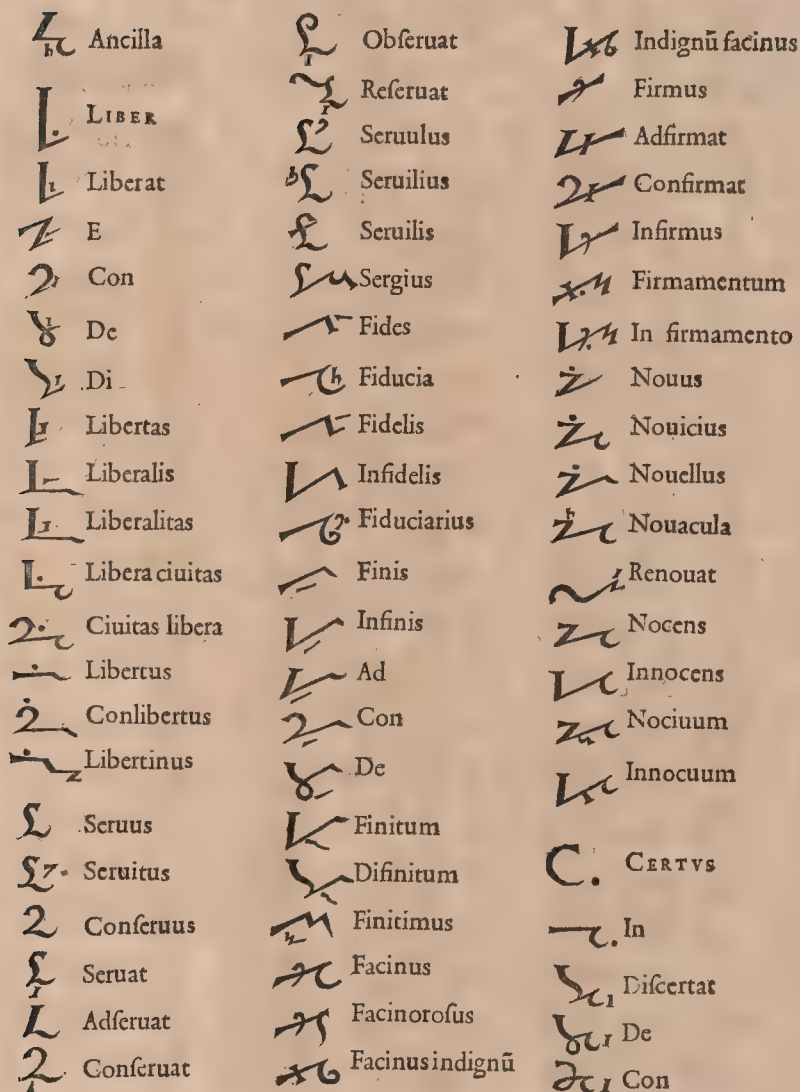 Ancilla
LIBER
Liberat
E
Con
De
Di
Libertas
Liberalis
Liberalitas
Libera ciuitas
Ciuitas libera
Libertus
Conlibertus
Libertinus
Seruus
Seruitus
Conſeruus
Seruat
Adſeruat
Conſeruat
Obſeruat
Reſeruat
Seruulus
Seruilius
Seruilis
Sergius
Fides
Fiducia
Fidelis
Infidelis
Fiduciarius
Finis
Infinis
Ad
Con
De
Finitum
Difinitum
Finitimus
Facinus
Facinoroſus
Facinus indignū
Indignū facinus
Firmus
Adfirmat
Confirmat
Infirmus
Firmamentum
In firmamento
Nouus
Nouicius
Nouellus
Nouacula
Renouat
Nocens
Innocens
Nociuum
Innocuum
C. CERTVS
In
Diſcertat
De
Con